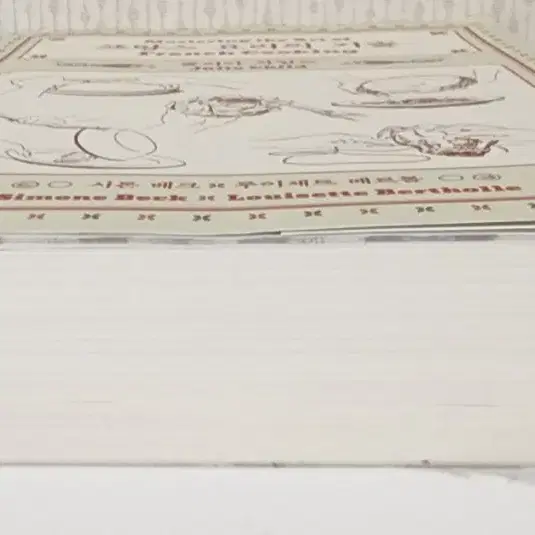 Mastering the Art of
프랑스 요리의 기술
French Cooking
줄리아 차일드
Julia Child
시몬 베크 루이제트 베르톨
Simone Beck Louisette Bertholle